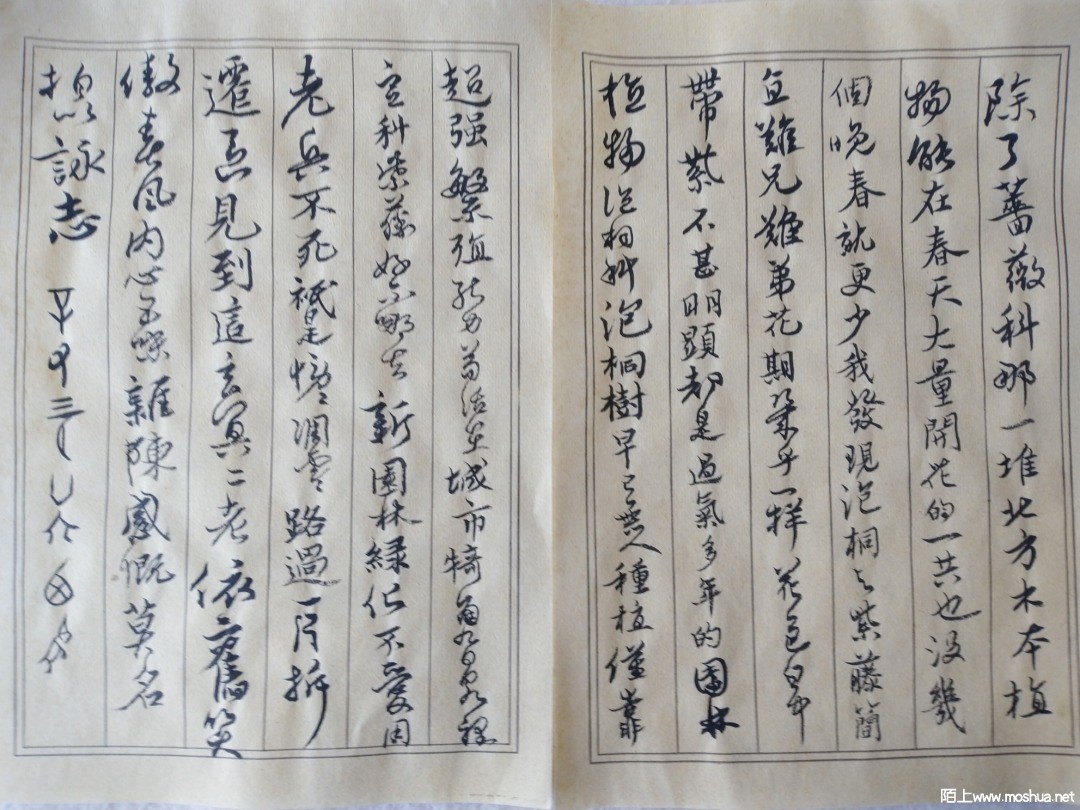 除了薔薇科那一堆北方木本植
物能在春天大量開花的一共也没幾
個晚春就更少我發現泡桐与紫藤簡
直難兄難弟花期幾乎一样花色白中
帶紫不甚明顯都是過氣多年的園林
植物泡桐科泡桐樹早已無人種植僅靠
超强繁殖能力苟活至城市犄角旮旯
豆科紫藤好不哪去新園林緑化不愛用
老兵不死衹是慢慢凋零路過一片拆
遷区見到這玄冥二老依舊笑
傲春風内心五味雜陳感慨莫名
拟詠志
陌上www.moshua.net